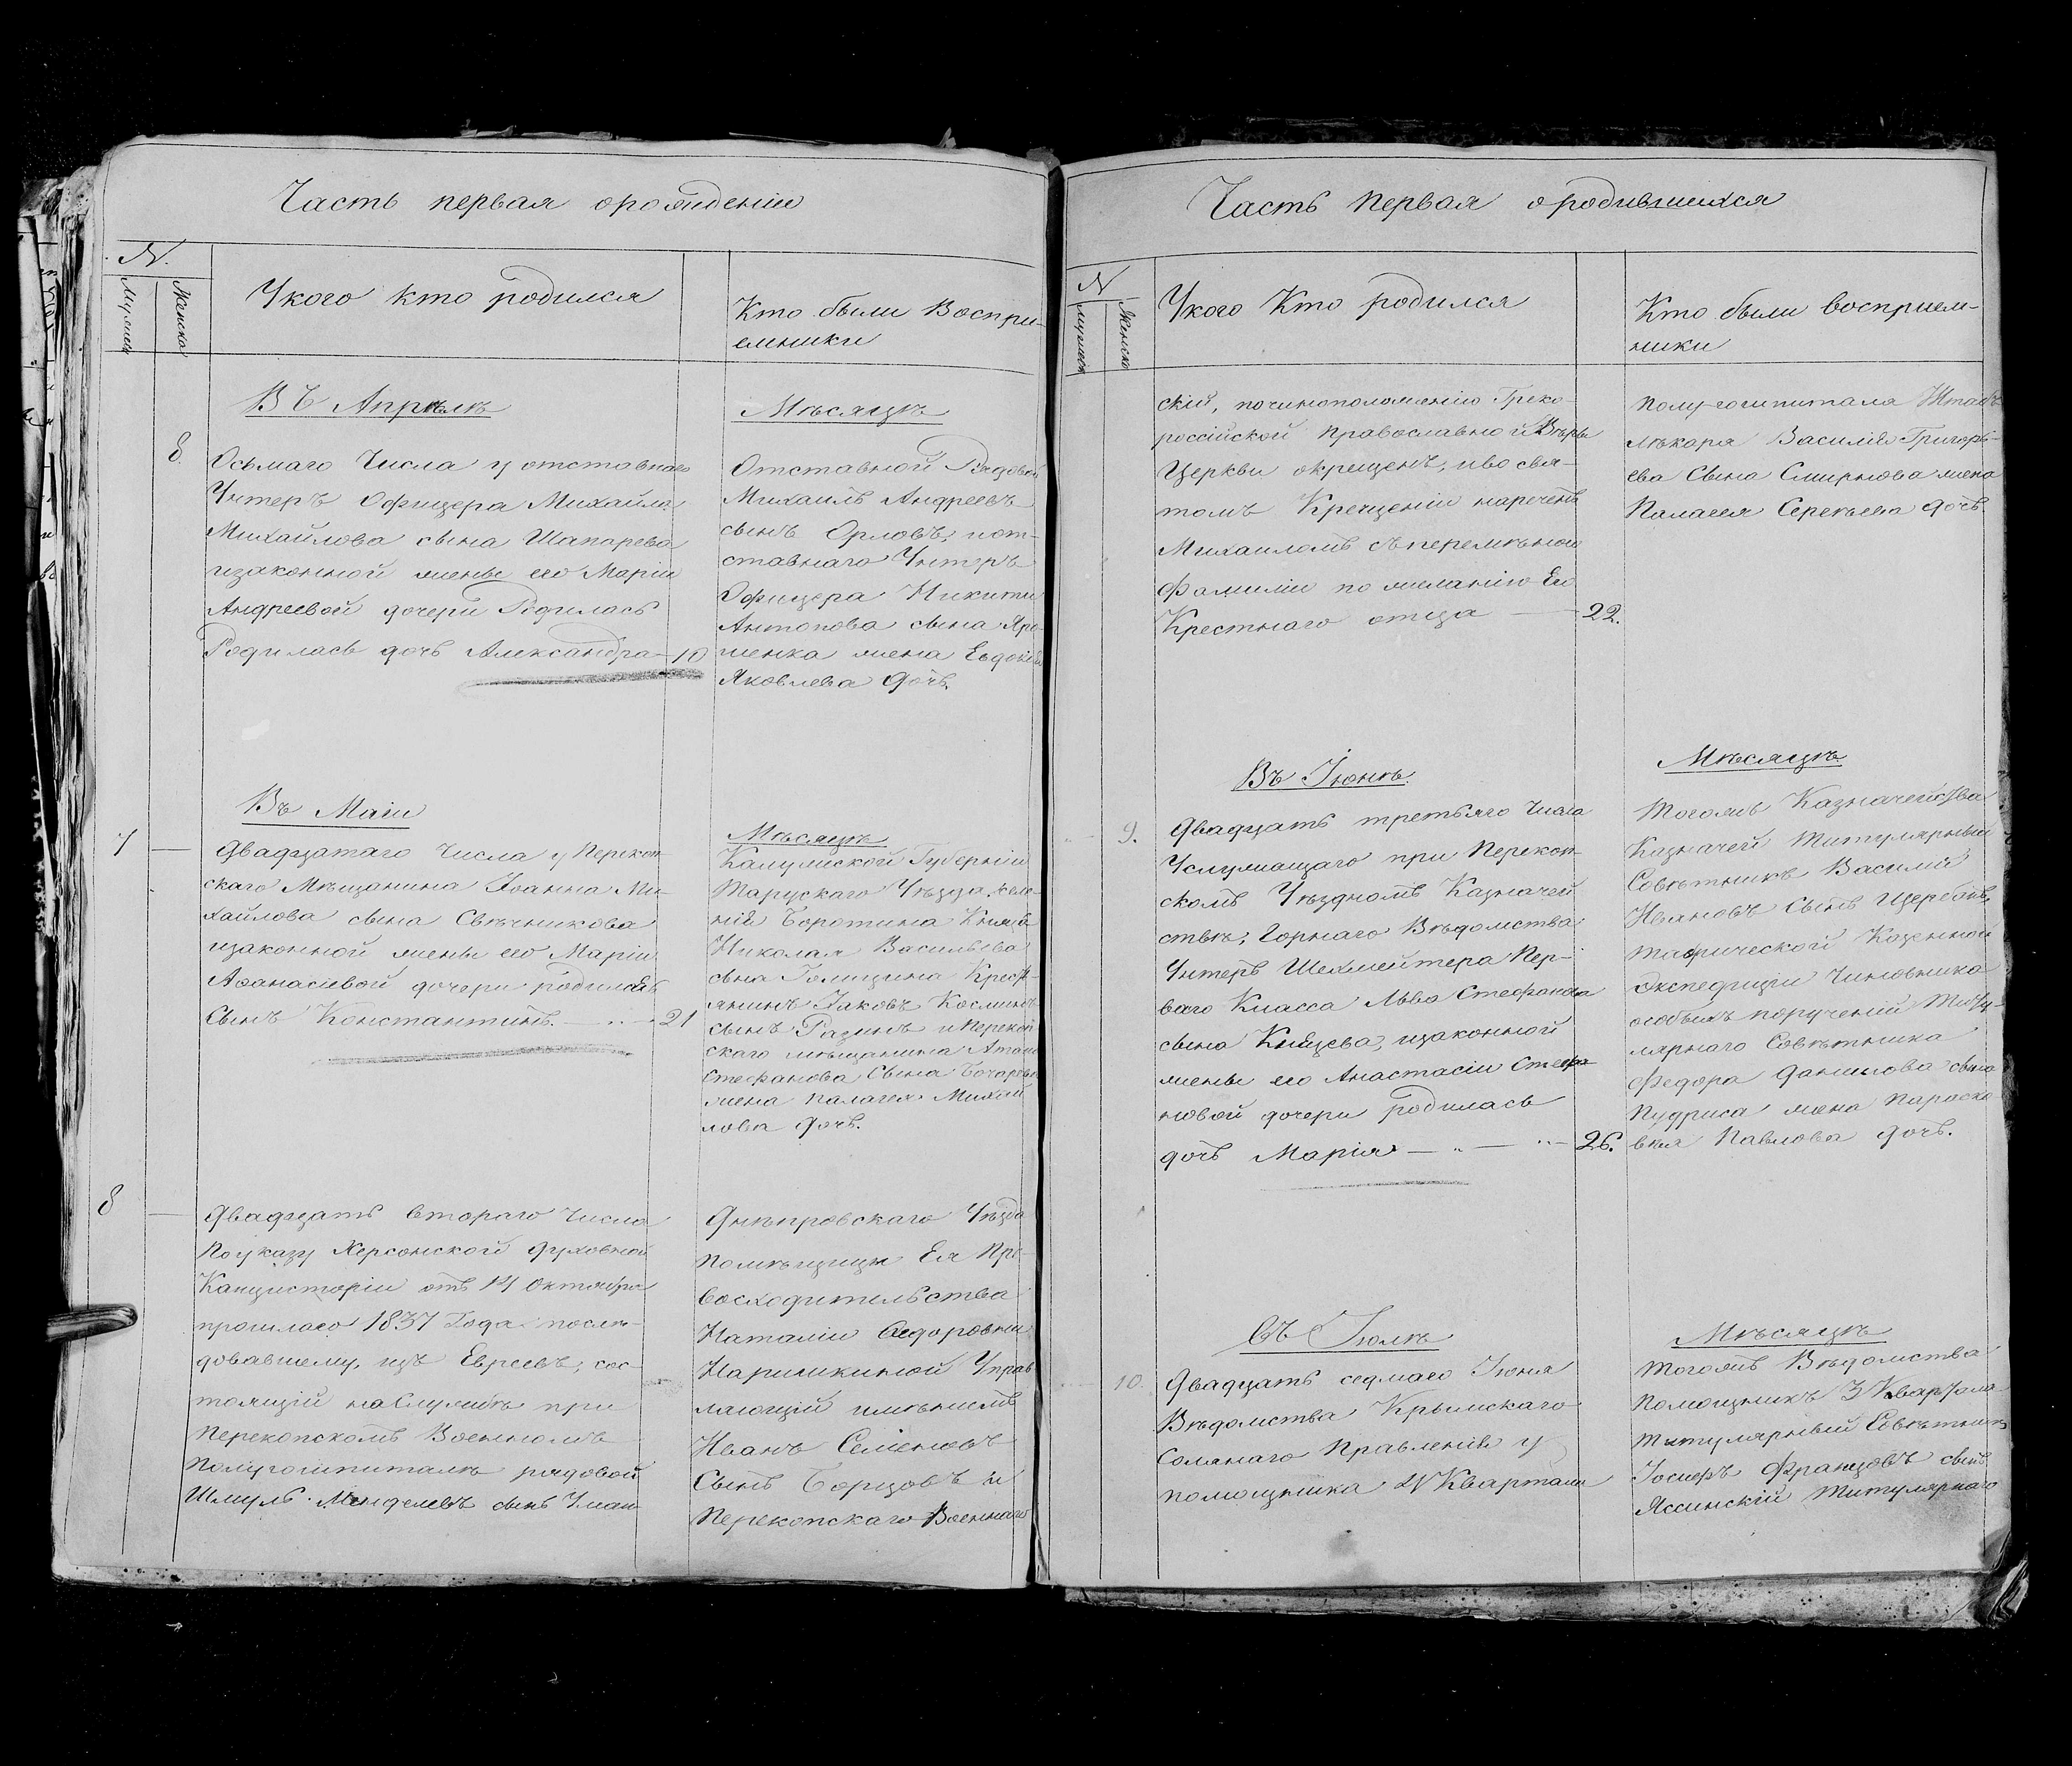 Часть первая о рожденіи
N.
Мужеск
Женска
У кого кто родился
Кто были Воспри-
емники
Въ Апрѣлѣ
8
Осьмаго Числа у отставнаго
Унтеръ Офицера Михайла
Михайлова сына Шапарева
изаконной жены его Маріи
Андреевой дочери Родилась
Родилась дочь Александра — 10
Мѣсяцѣ
Отставной Рядовой
Михаилъ Андреевъ
сынъ Орловъ, иот-
ставнаго Унтеръ
Офицера Никиты
Антонова сына Яро-
шенка жена Евдокія
Яковлева Дочь.
Въ Маіи
7
Двадцатаго Числа у Перекоп-
скаго Мѣщанина Іоанна Ми-
хайлова сына Свѣчникова
изаконной жены его Маріи
Аѳанасіевой дочери родился
Сынъ Константинъ. — 21
Мѣсяцѣ
Калужской Губерніи
Тарускаго Уѣзда селе-
нія Боротина Князя
Николая Васильева
сына Голицина Крест-
янинъ Іаковъ Косминъ
сынъ Разинъ и Перекоп-
скаго мѣщанина
Стефанова Сына
жена Палагея Михай-
лова дочь.
8
Двадцать втораго Числа
По указу Херсонской Духовной
Канцисторіи отъ 14 Октября
прошлаго 1837 Года послѣ-
довавшему, изъ Евреевъ, сос-
тоящій на Службѣ при
Перекопскомъ Военномъ
Полугошпиталѣ рядовой
Шмуль Менделевъ сынъ Уман-
Днѣпровскаго Уѣзда
Помѣщицы Ея Пре-
восходительства
Наталіи Ѳедоровны
Наришкиной Управ-
ляющій имѣніемъ
Иванъ Семіоновъ
Сынъ Борцовъ и
Перекопскаго Военнаго
Часть Первая о родившихся
N
Мужеск
Женска
У кого Кто родился
Кто были восприем-
ники
скій, починоположенію Греко-
россійской Православной Вѣры
Церкви окрещенъ, иво свя-
томъ Крещеніи нареченъ
Михаиломъ съ перемѣною
фамиліи по желанію Ею
Крестнаго отца — 22.
полугошпиталя Штабъ
лѣкаря Василія Григорь-
ева Сына Смирнова жена
Палагея Сергѣева дочь.
Въ Іюнѣ.
9.
Двадцать третьяго Числа
Услужащаго при Перекоп-
скомъ Уѣздномъ Казначей-
ствѣ, Горнаго Вѣдомства
Унтеръ Шехмейтера Пер-
ваго Класса Льва Стефанова
сына Князева, изаконной
жены его Анастасіи Стефа-
новой дочери родилась
дочь Марія — 26.
Мѣсяцѣ.
Тогожъ Казначейства
Казначей Титулярный
Совѣтникъ Василій
Ивановъ Сынъ Щербань,
Таврической Казенной
Экспедиціи Чиновника
особыхъ порученій Титу-
лярнаго Совѣтника
Федора Данилова сына
Пудриса жена Параско-
вья Павлова дочь.
Въ Іюлѣ
10.
Двадцать седмаго Іюня
Вѣдомства Крымскаго
Солянаго Правленія у
помощника IV Квартала
Мѣсяцѣ
Тогожъ Вѣдомства
Помощникъ 3 Квартала
Титулярный Совѣтникъ
Іосифъ Францовъ сынъ
Яссинскій Титулярнаго